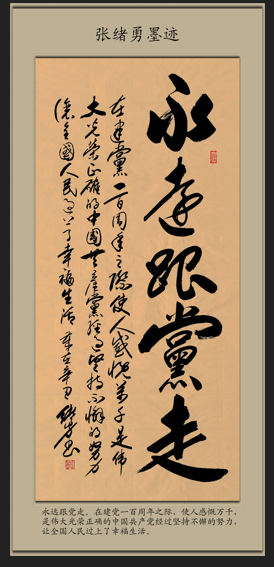 张绪勇墨迹
永远跟黨走
在建黨一百周年之際使人感慨萬千是偉
大光荣正確的中國共產黨經过堅持不懈的努力
讓全國人民过上了幸福生活
永远跟党走。在建党一百周年之际，使人感慨万千，
是伟大光荣正确的中国共产党经过坚持不懈的努力，
让全国人民过上了幸福生活。